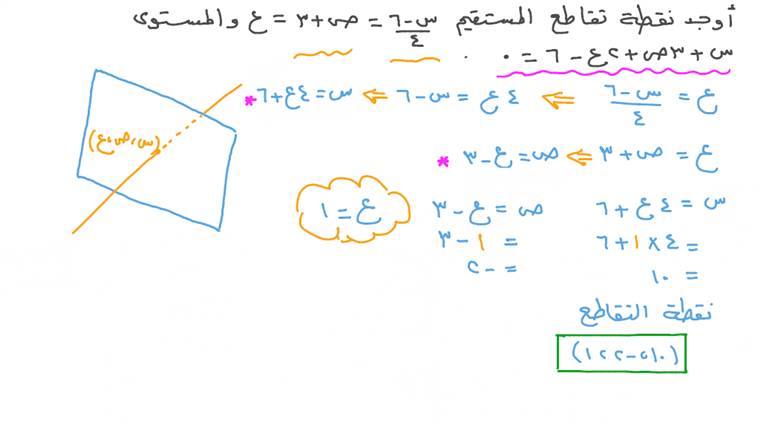 أوجد نقطة تقاطع المستقيم (س-٦)/٤ = ص+٣ = ع والمستوى
س+٣ص+٢ع-٦=٠ .
ع = (س-٦)/٤ ⇐ ٤ع = س-٦ ⇐ س=٤ع+٦ *
(س، ص، ع)
ع = ص+٣ ⇐ ص=ع-٣ *
س=٤ع+٦
=٤×١+٦
=١٠
ص=ع-٣
=١-٣
=-٢
ع=١
نقطة التقاطع
(١٠،-٢،١)